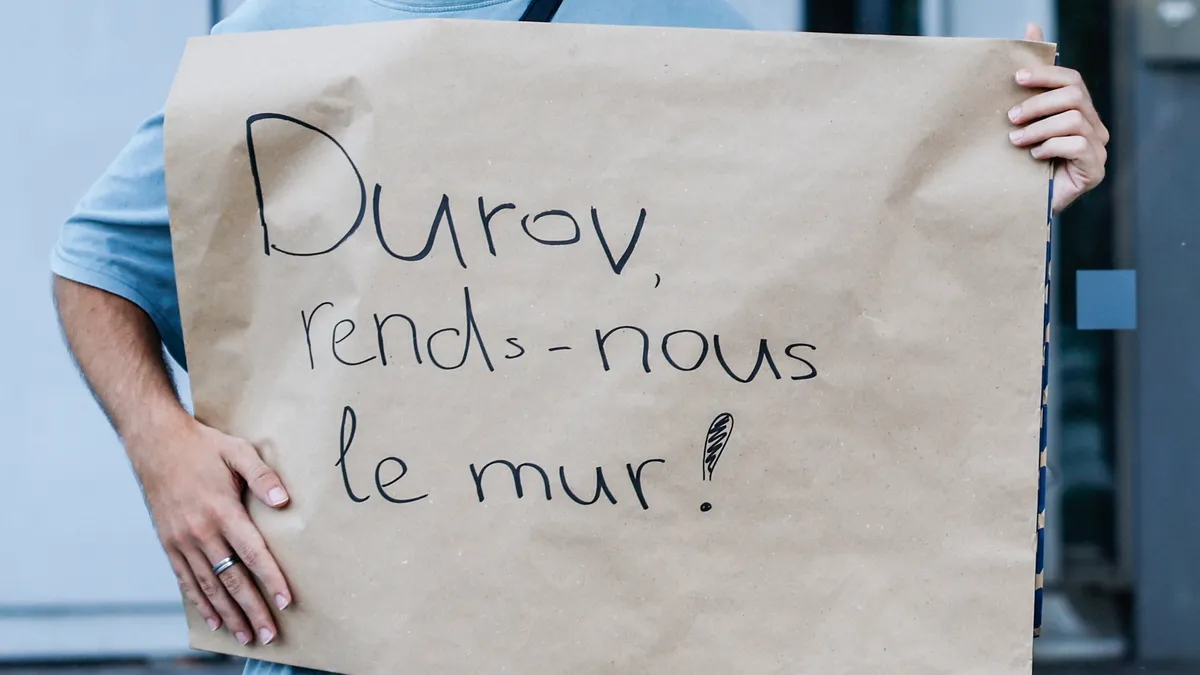 Durov,
rends-nous
le mur!